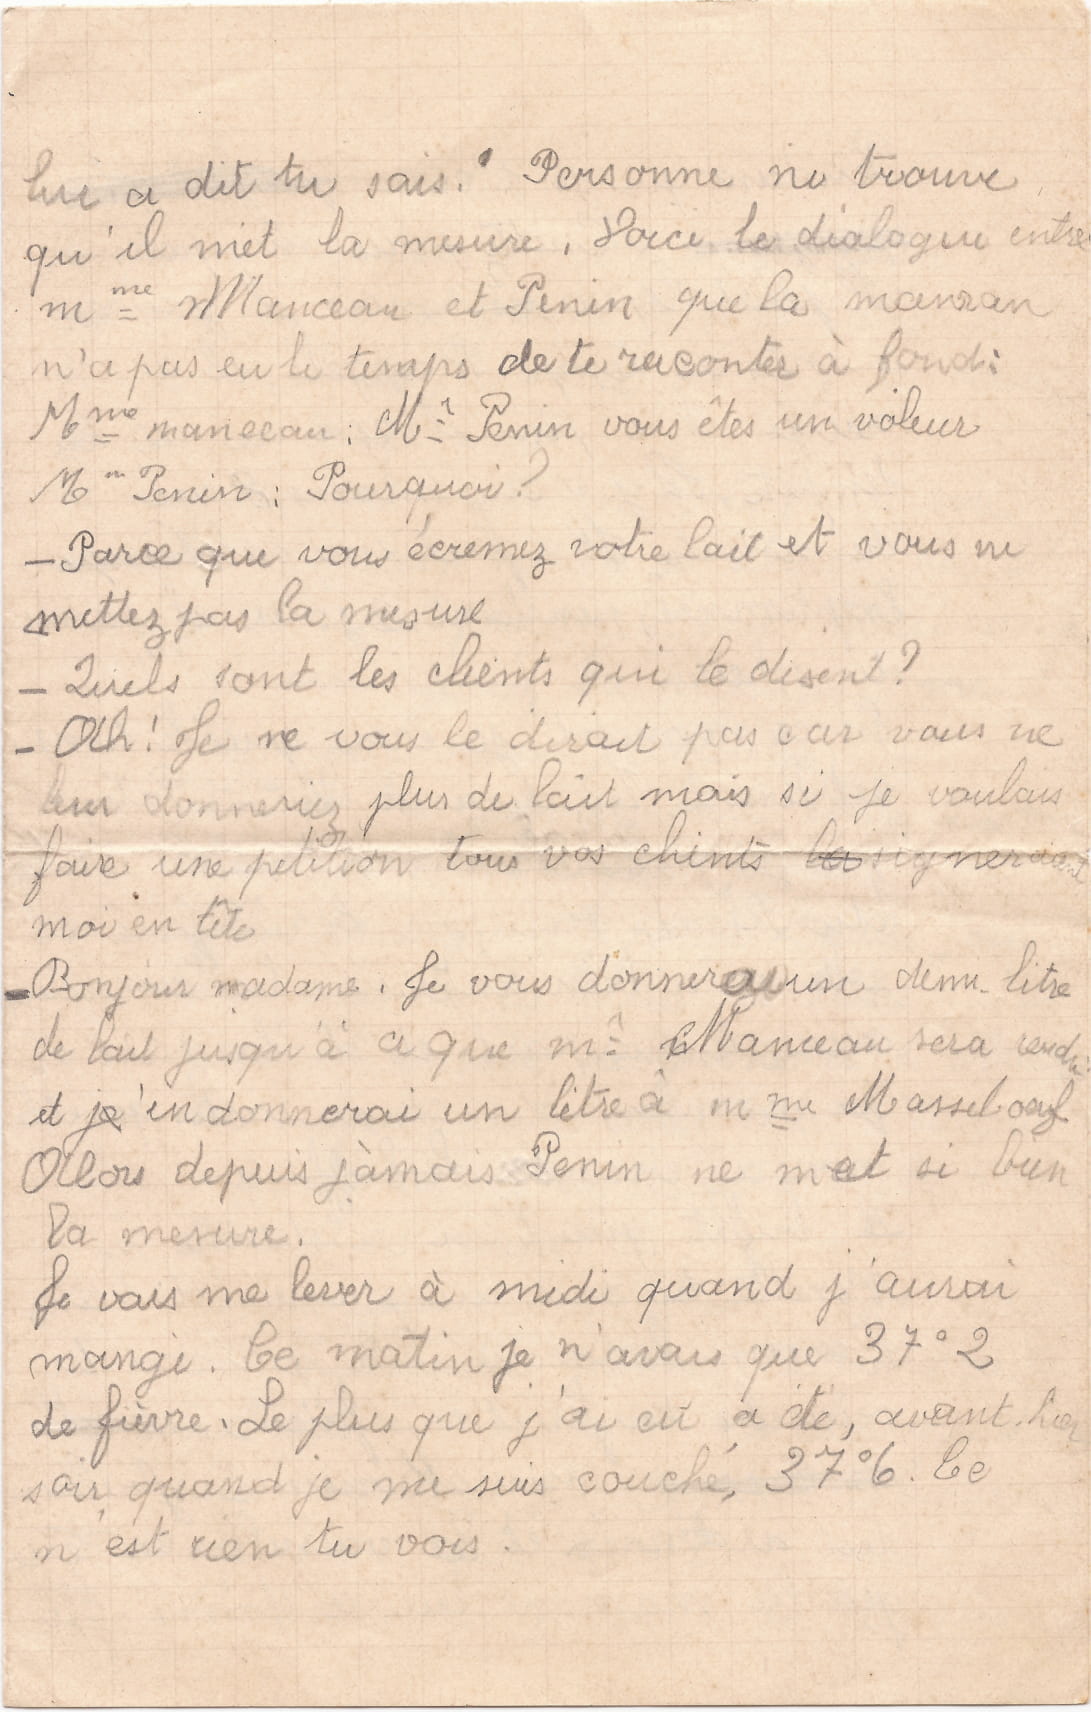 lui a dit tu sais. Personne ne trouve
qu'il met la mesure. Voici le dialogue entre
mme Manceau et Penin que la maman
n'a pas eu le temps de te raconter à fond :
Mme manceau : Mr Penin vous êtes un voleur
Mm Penin : Pourquoi ?
– Parce que vous écremez votre lait et vous ne
mettez pas la mesure
– Quels sont les clients qui le disent ?
– Oh ! Je ne vous le dirait pas car vous ne
leur donneriez plus de lait mais si je voulais
faire une petition tous vos clients signeraient
moi en tête
– Bonjour madame. Je vous donnerai un demi-litre
de lait jusqu'à ce que mr Manceau sera rendu
et j'en donnerai un litre à mme Masselboeuf
Alors depuis jàmais Penin ne met si bien
la mesure.
Je vais me lever à midi quand j'aurai
mangé. Ce matin je n'avais que 37°2
de fièvre. Le plus que j'ai eu a été, avant-hier
soir quand je me suis couché, 37°6. Ce
n'est rien tu vois.